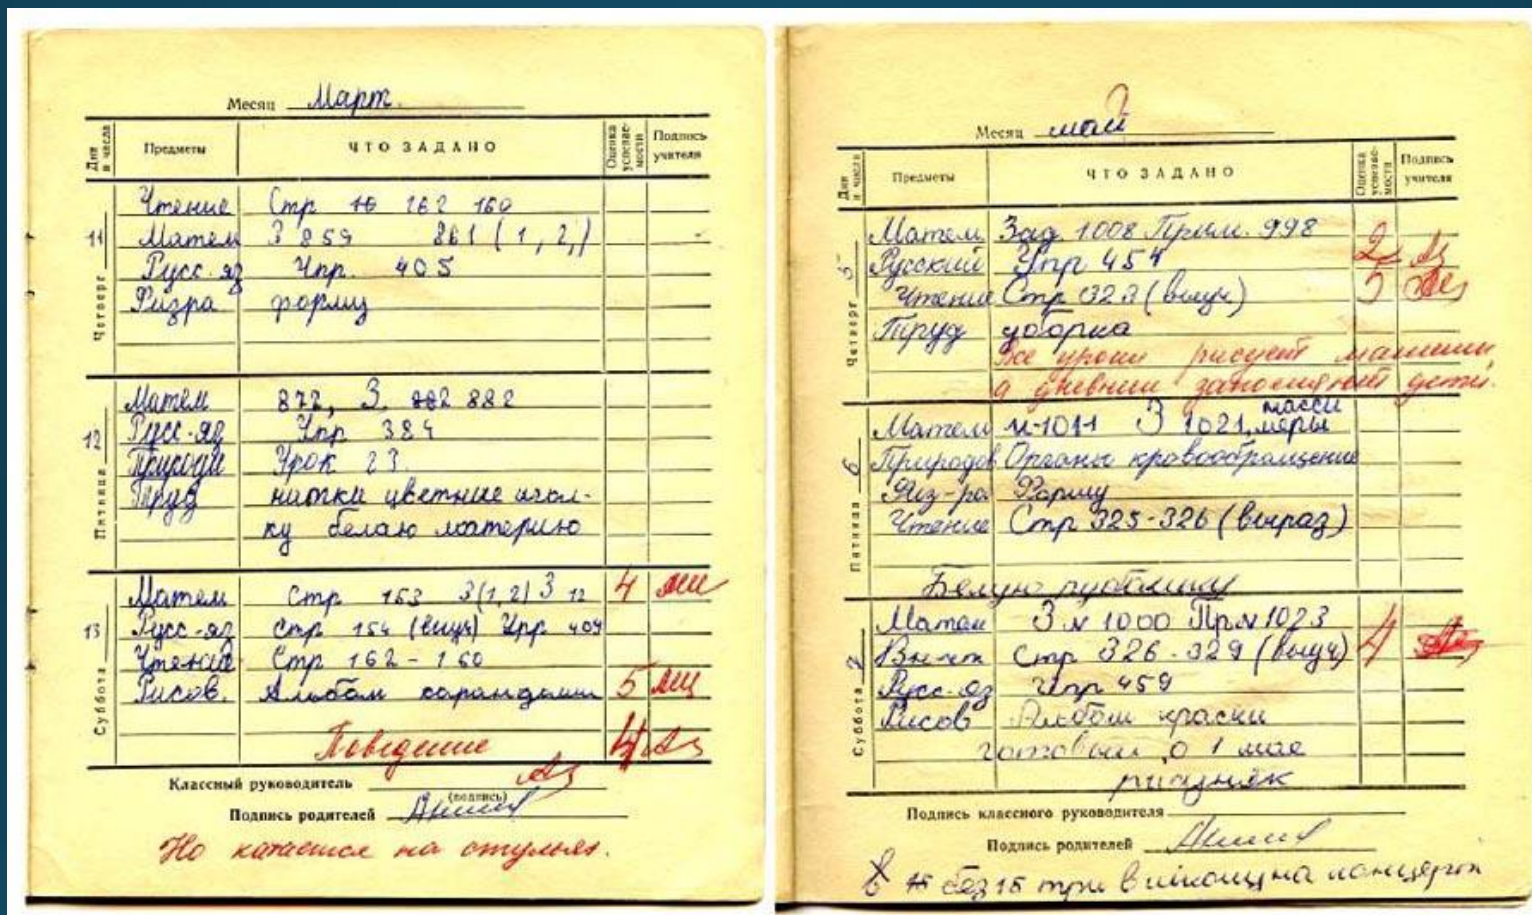 Месяц Март.
Дни и числа Предметы ЧТО ЗАДАНО Оценка успевае-мости Подпись учителя
Четверг 11
Чтение Стр 162 160
Матем З 859 861 (1, 2,)
Русс-яз Упр. 405
Физра форму
Пятница 12
Матем 872, З. 882
Русс-яз Упр 384
Природ Урок 23.
Труд нитки цветные игол-
ку белаю материю
Суббота 13
Матем Стр 163 3(1,2) З 12 4
Русс-яз Стр 154 (выуч) Упр 409
Чтение Стр 162-160
Рисов. Альбом карандаши 5
Поведение 4
Классный руководитель
(подпись)
Подпись родителей
Но катается на стульях.
Месяц май
Дни и числа Предметы ЧТО ЗАДАНО Оценка успевае-мости Подпись учителя
Четверг 5
Матем Зад. 1008 Прим. 998
Русский Упр 454 2
Чтение Стр 323 (выуч) 5
Труд уборка
На уроки рисует машины,
а дневник заполняют дети.
Пятница 6
Матем N-1011 З 1021, массы
меры
Природов Органы кровообращение
Физ-ра Форму
Чтение Стр 325-326 (выраз)
Белую рубашку
Суббота
Матем З N 1000 Пр N 1023
Вн-чт Стр 326-329 (выуч) 4
Русс-яз Упр 459
Рисов Альбом краски
о 1 мае
Подпись классного руководителя
Подпись родителей
без 15 три в школу на концерт